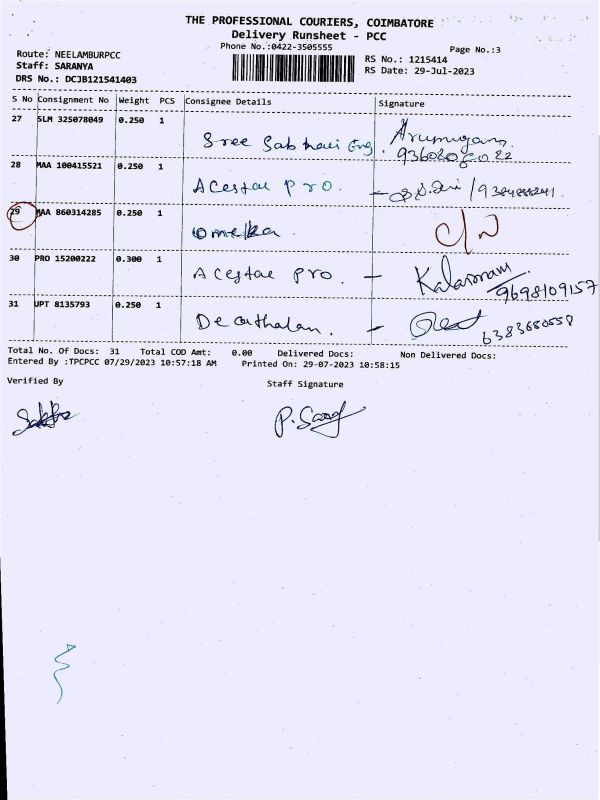 THE PROFESSIONAL COURIERS, COIMBATORE
Delivery Runsheet - PCC
Phone No.:0422-3505555
Page No.:3
Route: NEELAMBURPCC
Staff: SARANYA
DRS No.: DCJB121541403
RS No.: 1215414
RS Date: 29-Jul-2023
S No Consignment No Weight PCS Consignee Details Signature
27 SLM 325078049 0.250 1
Sree Sabhari Eng. Arumugam
28 MAA 100415521 0.250 1
Acestae Pro. -
29 MAA 860314285 0.250 1
omeka
30 PRO 15200222 0.300 1
Acestae Pro. -
9698109157
31 UPT 8135793 0.250 1
Decathalan. -
6383680558
Total No. Of Docs: 31 Total COD Amt: 0.00 Delivered Docs: Non Delivered Docs:
Entered By :TPCPCC 07/29/2023 10:57:18 AM Printed On: 29-07-2023 10:58:15
Verified By Staff Signature